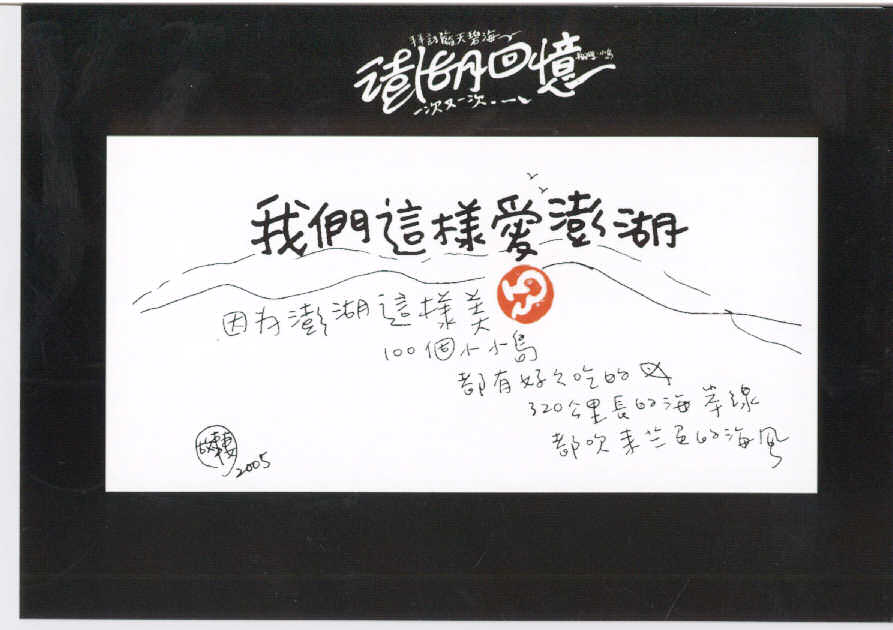 拜訪藍天碧海
澎湖回憶
一次又一次...
我們這樣愛澎湖
因為澎湖這樣美
100個小小島
都有好久吃的
320公里長的海岸線
都吹來兰色的海風
2005